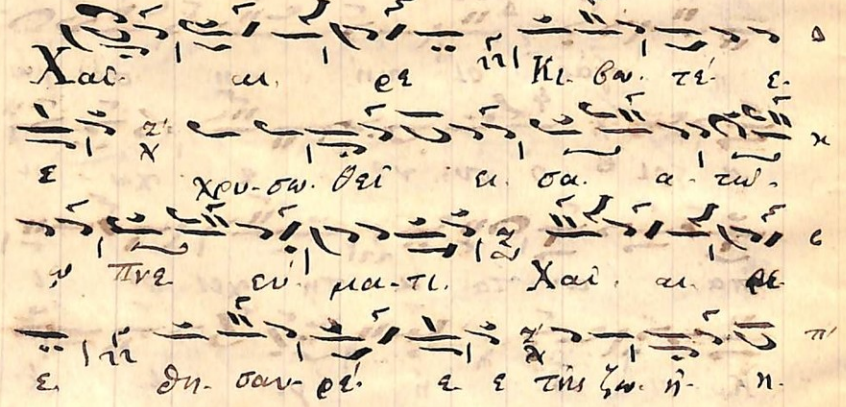 Χαῖ- αι. ρε Κι- βω- τέ- ε-
ε χρυ-σω- θεῖ ει- σα- α- τῷ-
ῳ Πνε εύ- μα-τι. Χαῖ- αι- ρε-
ε. θη- σαυ- ρέ- ε- ε τῆς ζω- ῆ- η-